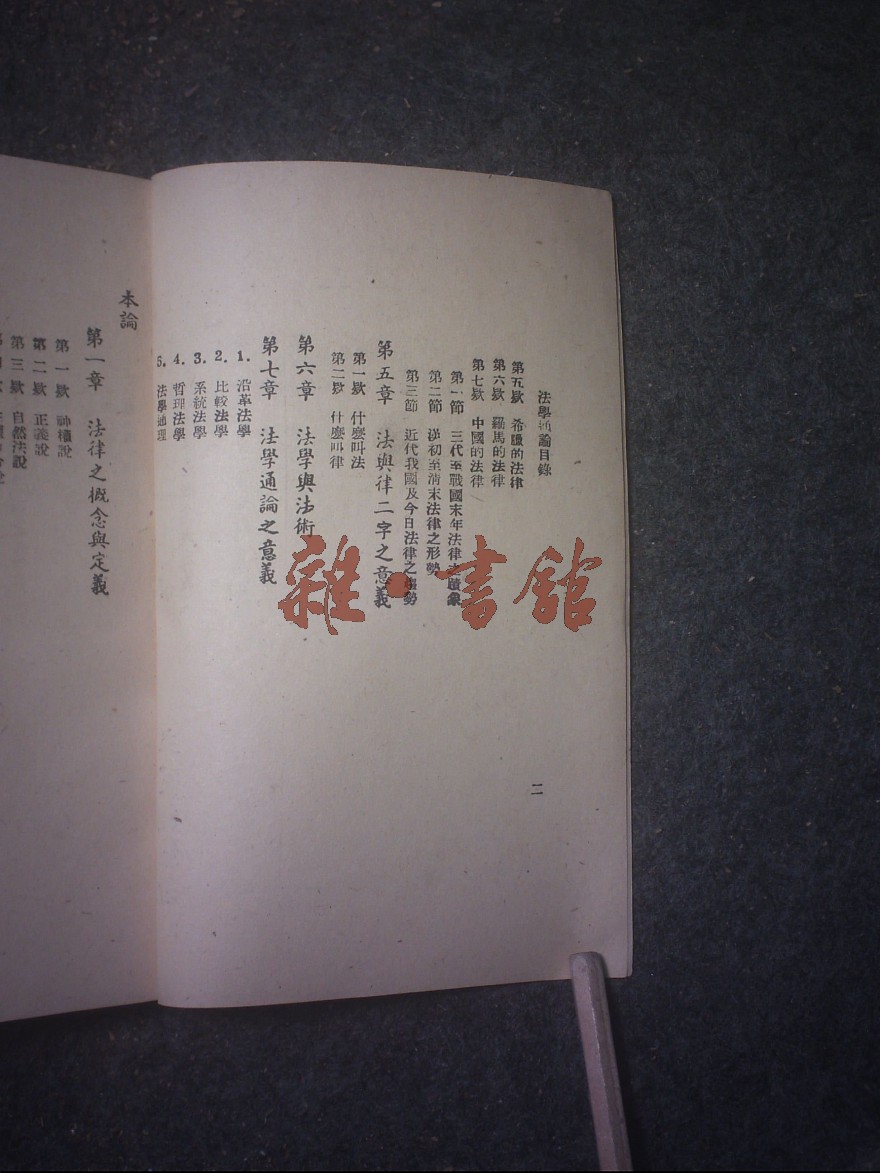 法學通論目錄
第五欵 希臘的法律
第六欵 羅馬的法律
第七欵 中國的法律
第一節 三代至戰國末年法律之蹟象
第二節 漢初至淸末法律之形勢
第三節 近代我國及今日法律之趨勢
第五章 法與律二字之意義
第一欵 什麼叫法
第二欵 什麼叫律
第六章 法學與法術
第七章 法學通論之意義
1. 沿革法學
2. 比較法學
3. 系統法學
4. 哲理法學
5. 法學通理
二
本論
第一章 法律之概念與定義
第一欵 神權說
第二欵 正義說
第三欵 自然法說
雜·書館